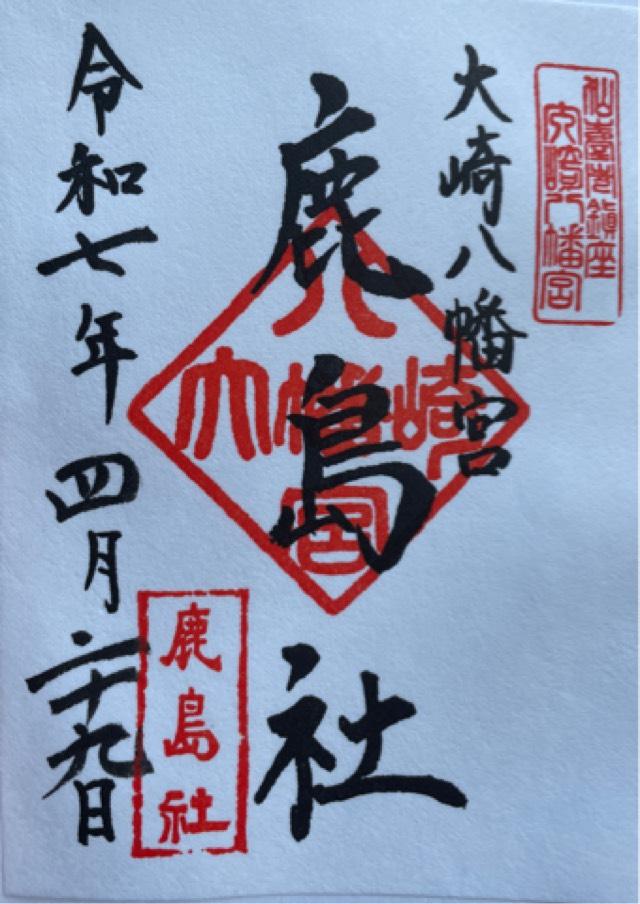 鎮座
八幡宮
大崎八幡宮
鹿島社
大崎八幡宮
令和七年四月二十九日
鹿島社